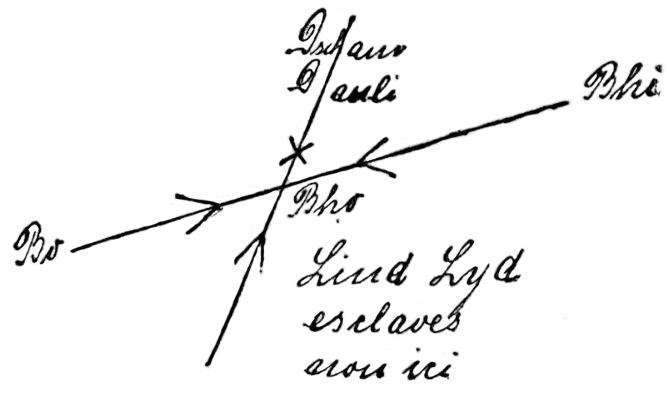 Dschano
Dauli
Bhi
Bho
Bo
Lind Lyd
esclaves
non ici